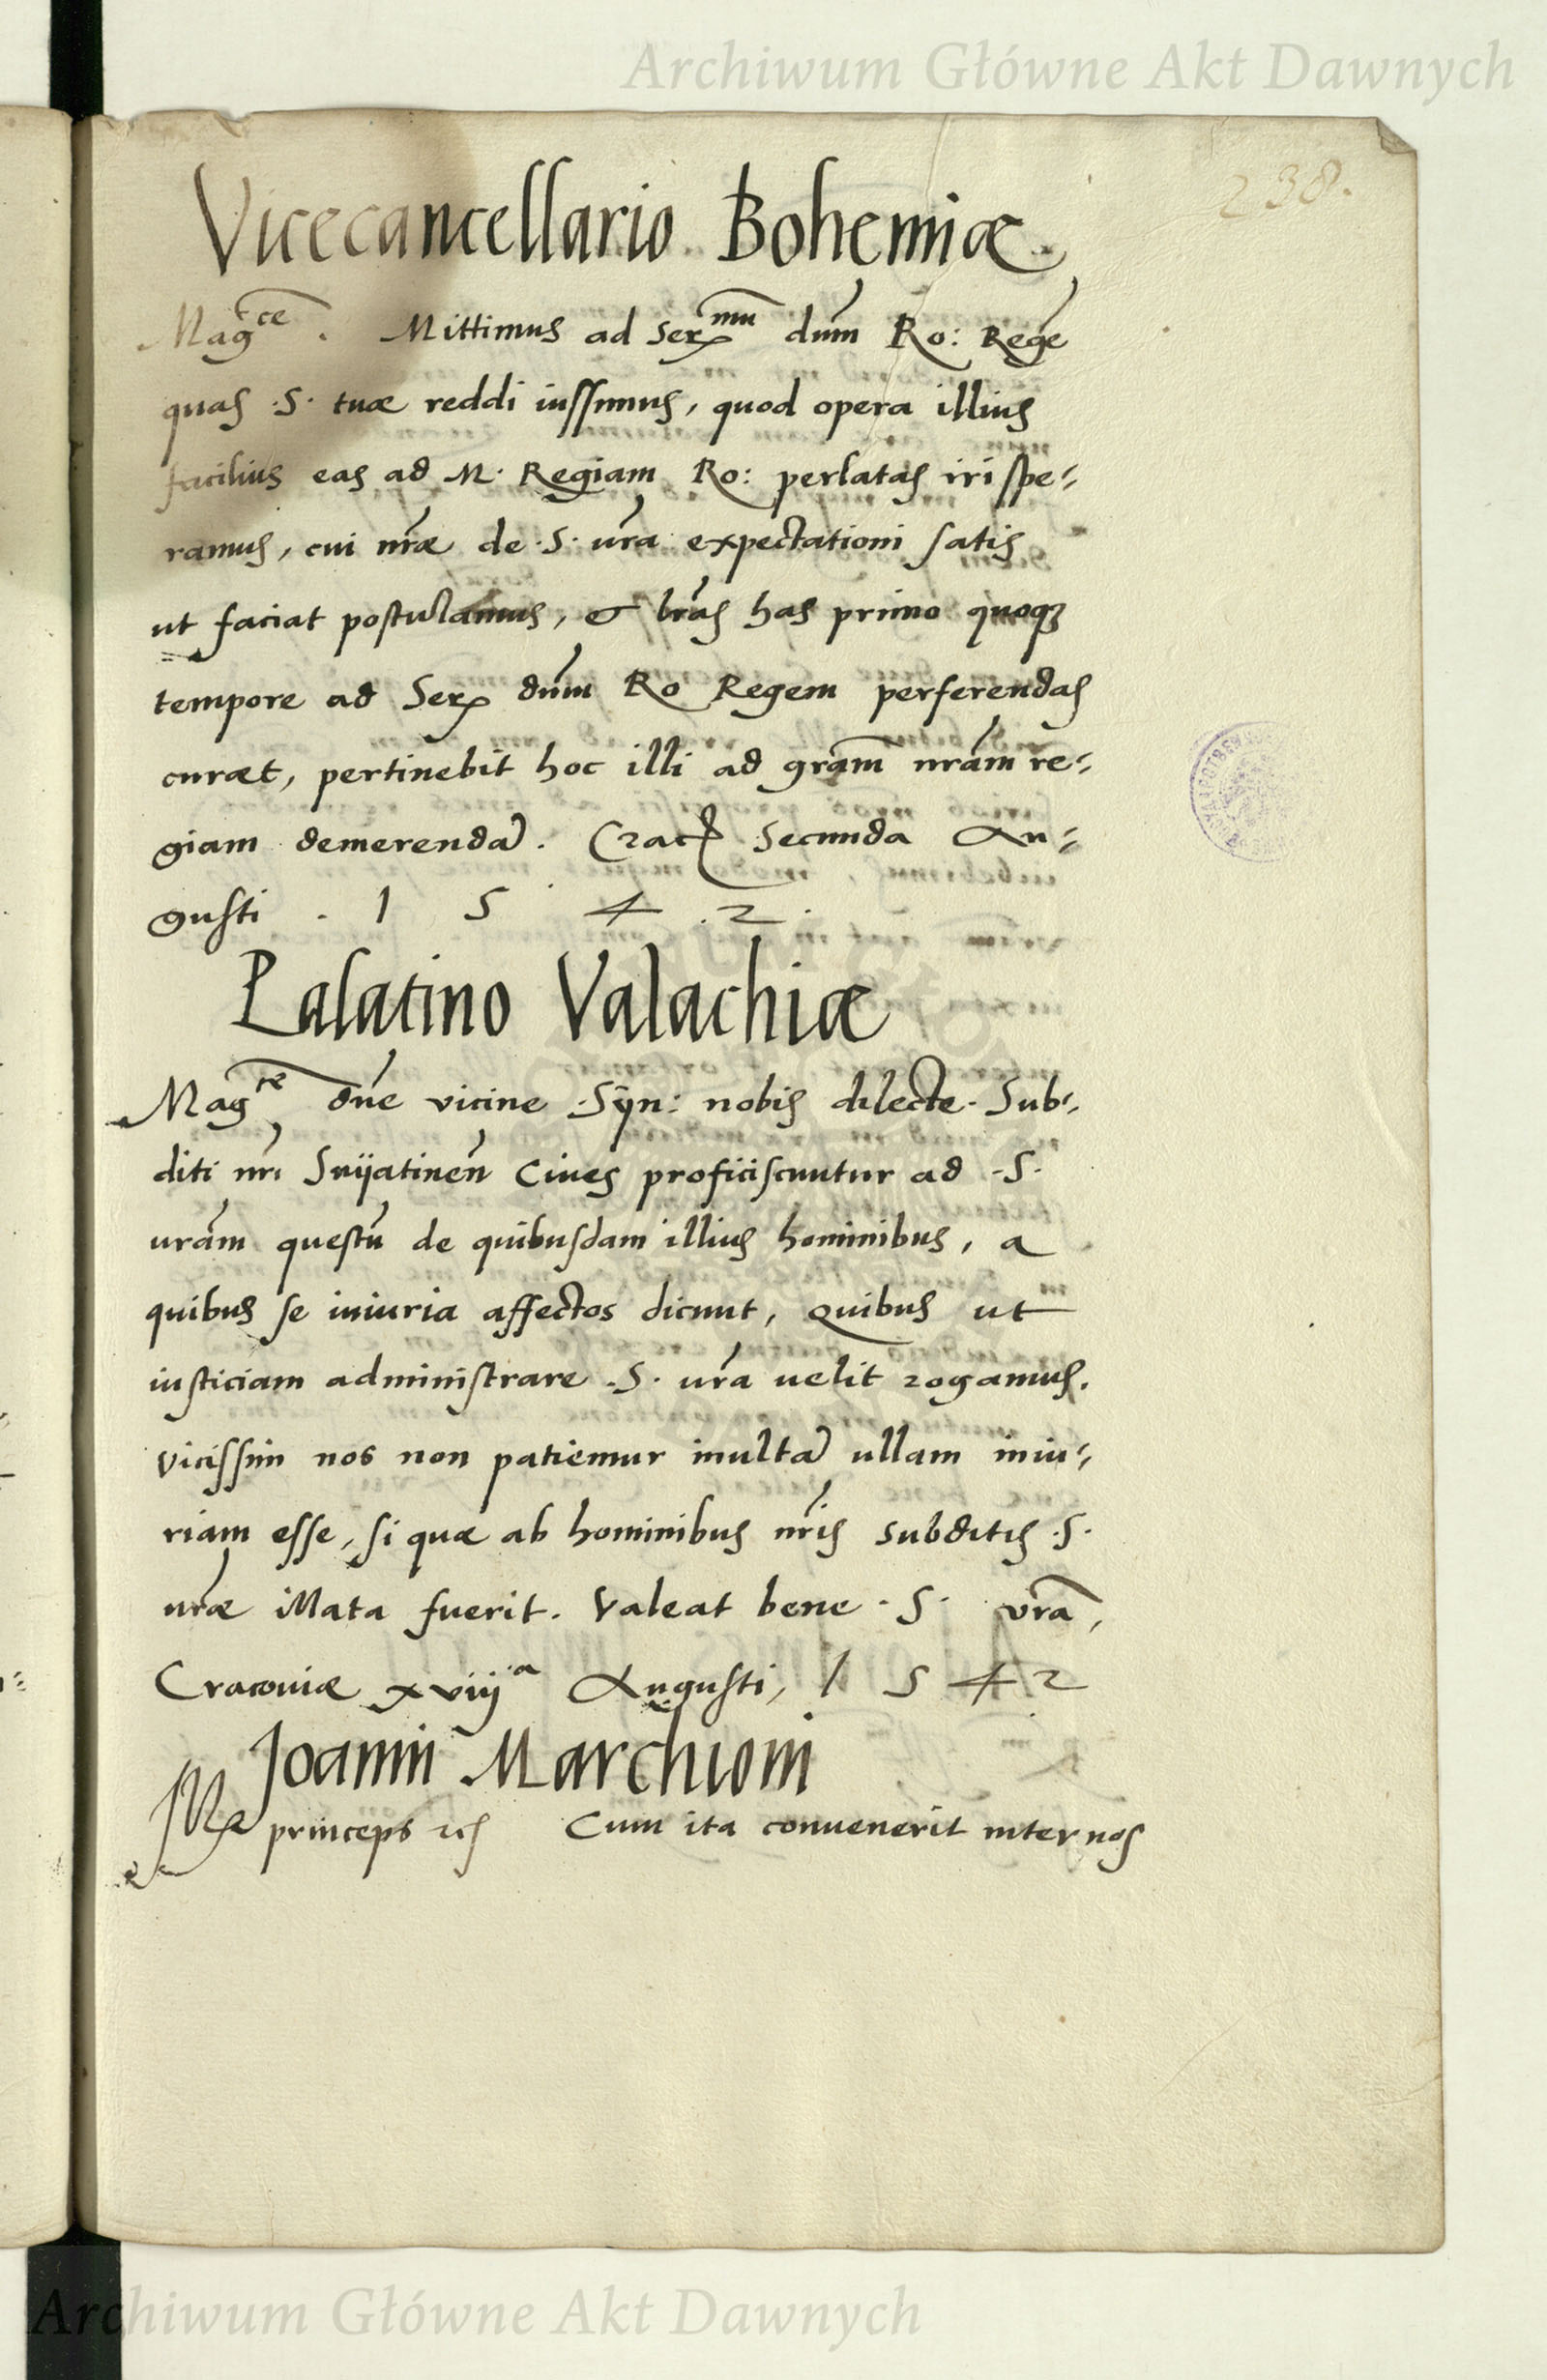 Archiwum Główne Akt Dawnych
238.
Vicecancellario Bohemiæ
Mag^ce. Mittimus ad Ser^mu dum Ro: Regē
quas .S. tuæ reddi iussimus, quod opera illius
facilius eas ad M. Regiam Ro: perlatas iri spe=
ramus, cui nræ de .S. vra expectationi satis
ut faciat postulamus, & lras has primo quoq
tempore ad Ser dum Ro Regem perferendas
curæt, pertinebit hoc illi ad gram nram re=
giam demerendā. Crac Secunda Au=
gusti . 1 5 4 2.
Palatino Valachiæ
Mag^ce dne vicine Syn: nobis dilecte. Sub=
diti nri Snÿatinen Cives proficiscuntur ad .S.
uram questu de quibusdam illius hominibus, a
quibus se iniuria affectos dicunt, Quibus ut
iusticiam administrare .S. ura uelit rogamus.
vicissim nos non patiemur inultā ullam iniu=
riam esse, si quæ ab hominibus nris subditis .S.
uræ illata fuerit. Valeat bene .S. vra,
Cracouiæ xviij^a Augusti, 1 5 4 2
Joanni Marchioni
princeps Cum ita conuenerit inter nos
Archiwum Główne Akt Dawnych